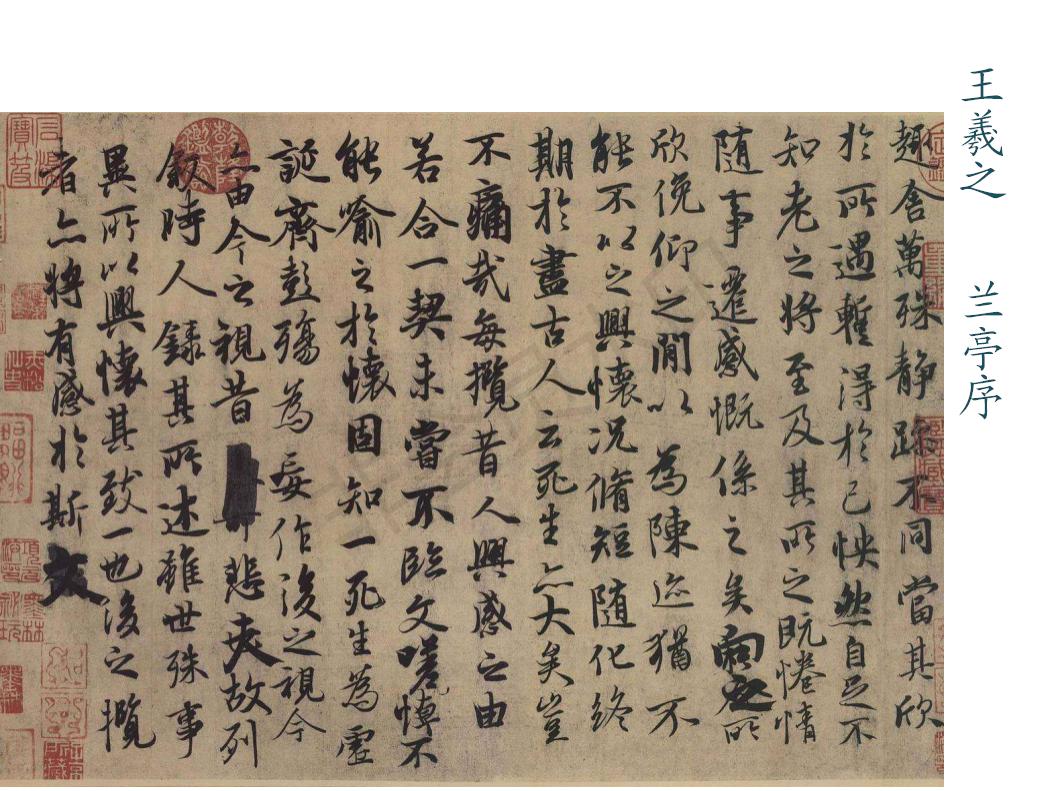 王羲之 兰亭序
趣舍萬殊靜躁不同當其欣
於所遇暫得於己怏然自足不
知老之將至及其所之既惓情
随事遷感慨係之矣向之所
欣俛仰之閒以為陳迹猶不
能不以之興懷況脩短随化終
期於盡古人云死生亦大矣豈
不痛哉每攬昔人興感之由
若合一契未嘗不臨文嗟悼不
能喻之於懷固知一死生為虛
誕齊彭殤為妄作後之視今
亦由今之視昔悲夫故列
敘時人錄其所述雖世殊事
異所以興懷其致一也後之攬
者亦將有感於斯文